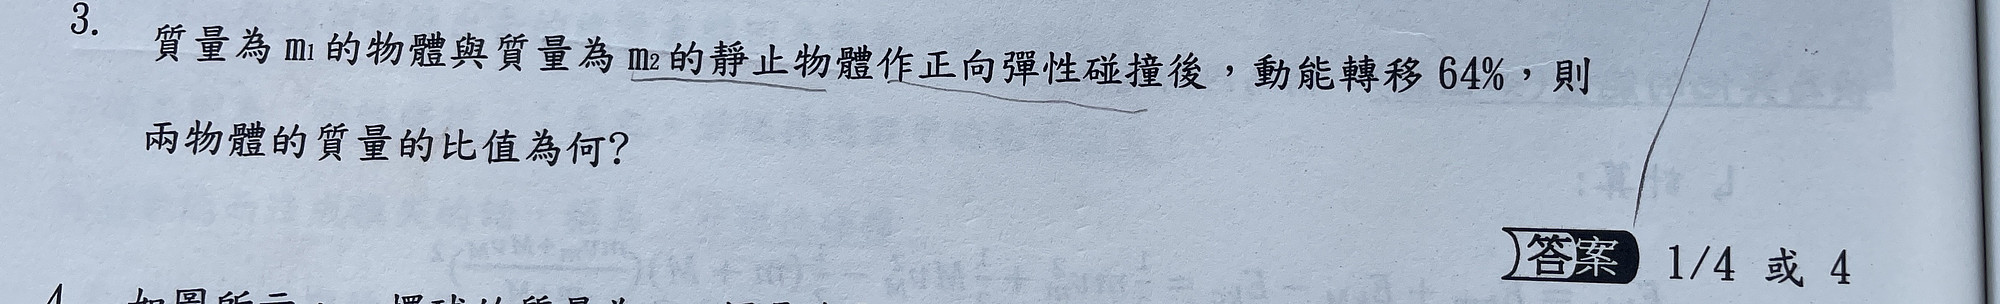 3.
質量為 m1 的物體與質量為 m2 的靜止物體作正向彈性碰撞後，動能轉移 64%，則
兩物體的質量的比值為何?
答案 1/4 或 4
4. 如圖所示